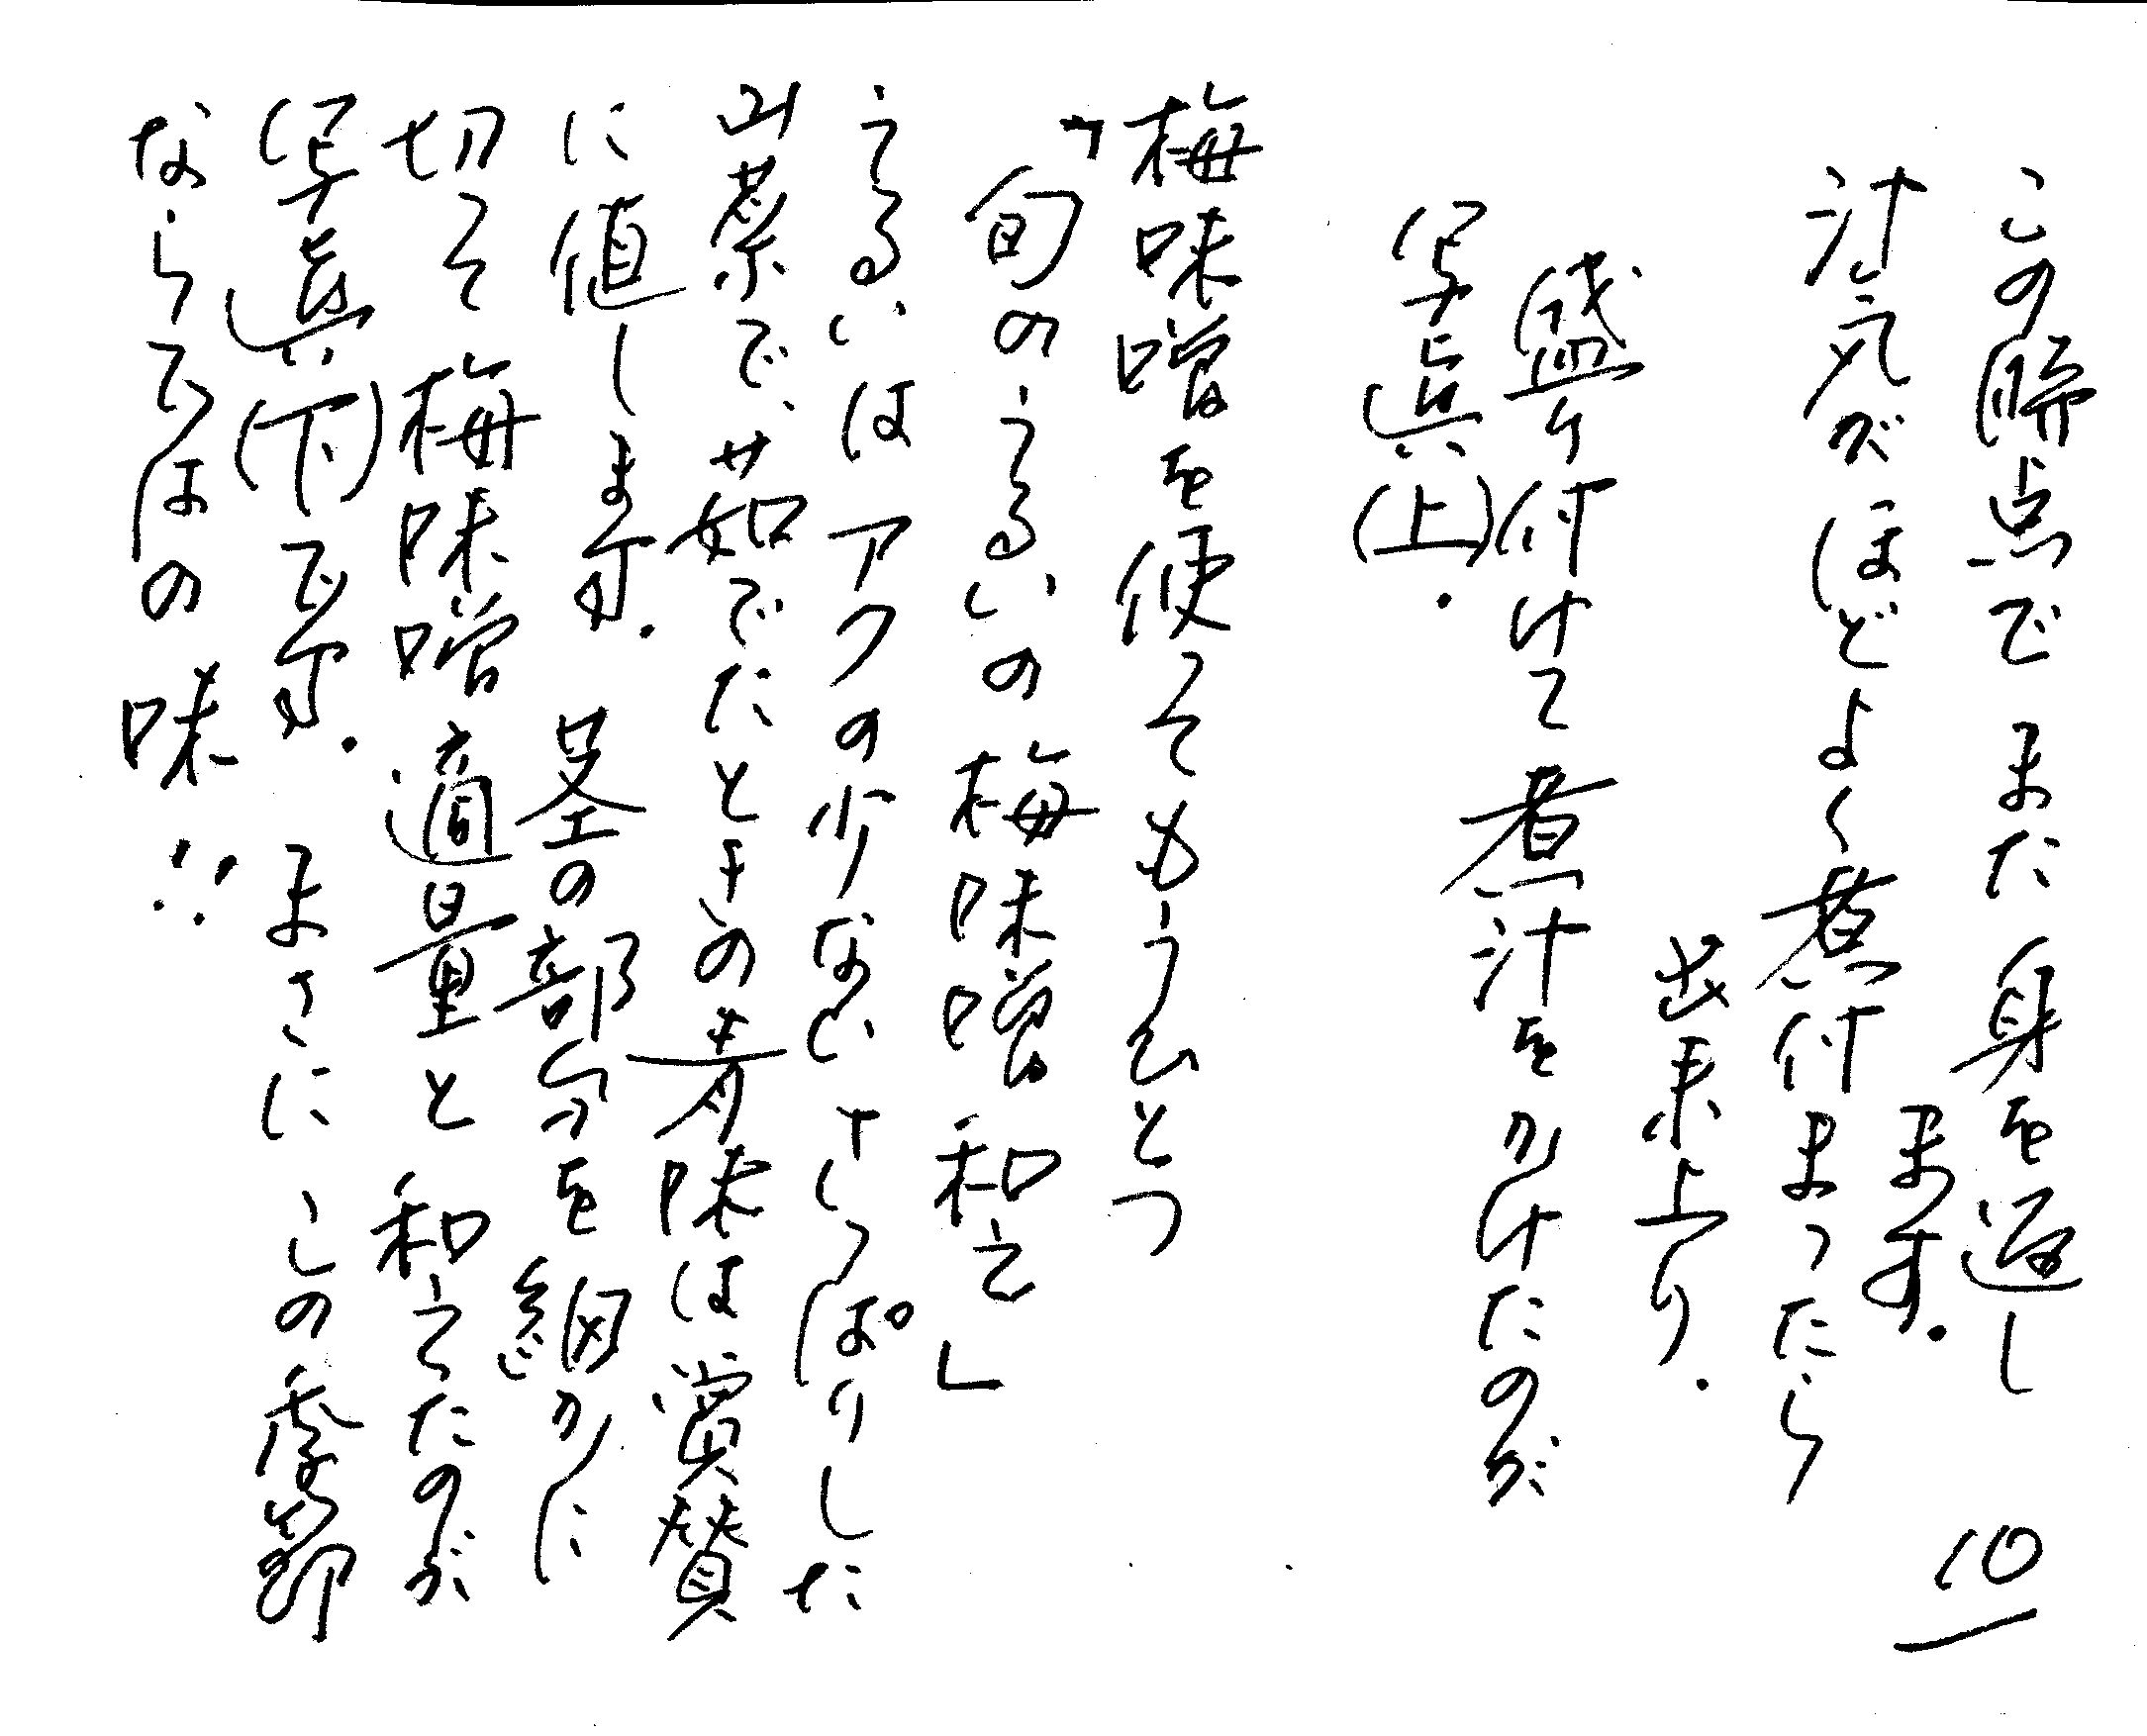 この時点でまた身を返し
ます。
汁気がほどよく煮付まったら
出来上り。
盛り付けて煮汁をかけたのが
写真(上)。
梅味噌を使ってもうひとつ
「旬のうるいの梅味噌和え」
うるいはアクの少ないさっぱりした
山菜で、茹でたときの青味は賞賛
に値します。茎の部分を細かに
切って梅味噌適量と和えたのが
写真(下)です。まさにこの季節
ならではの味‥
10